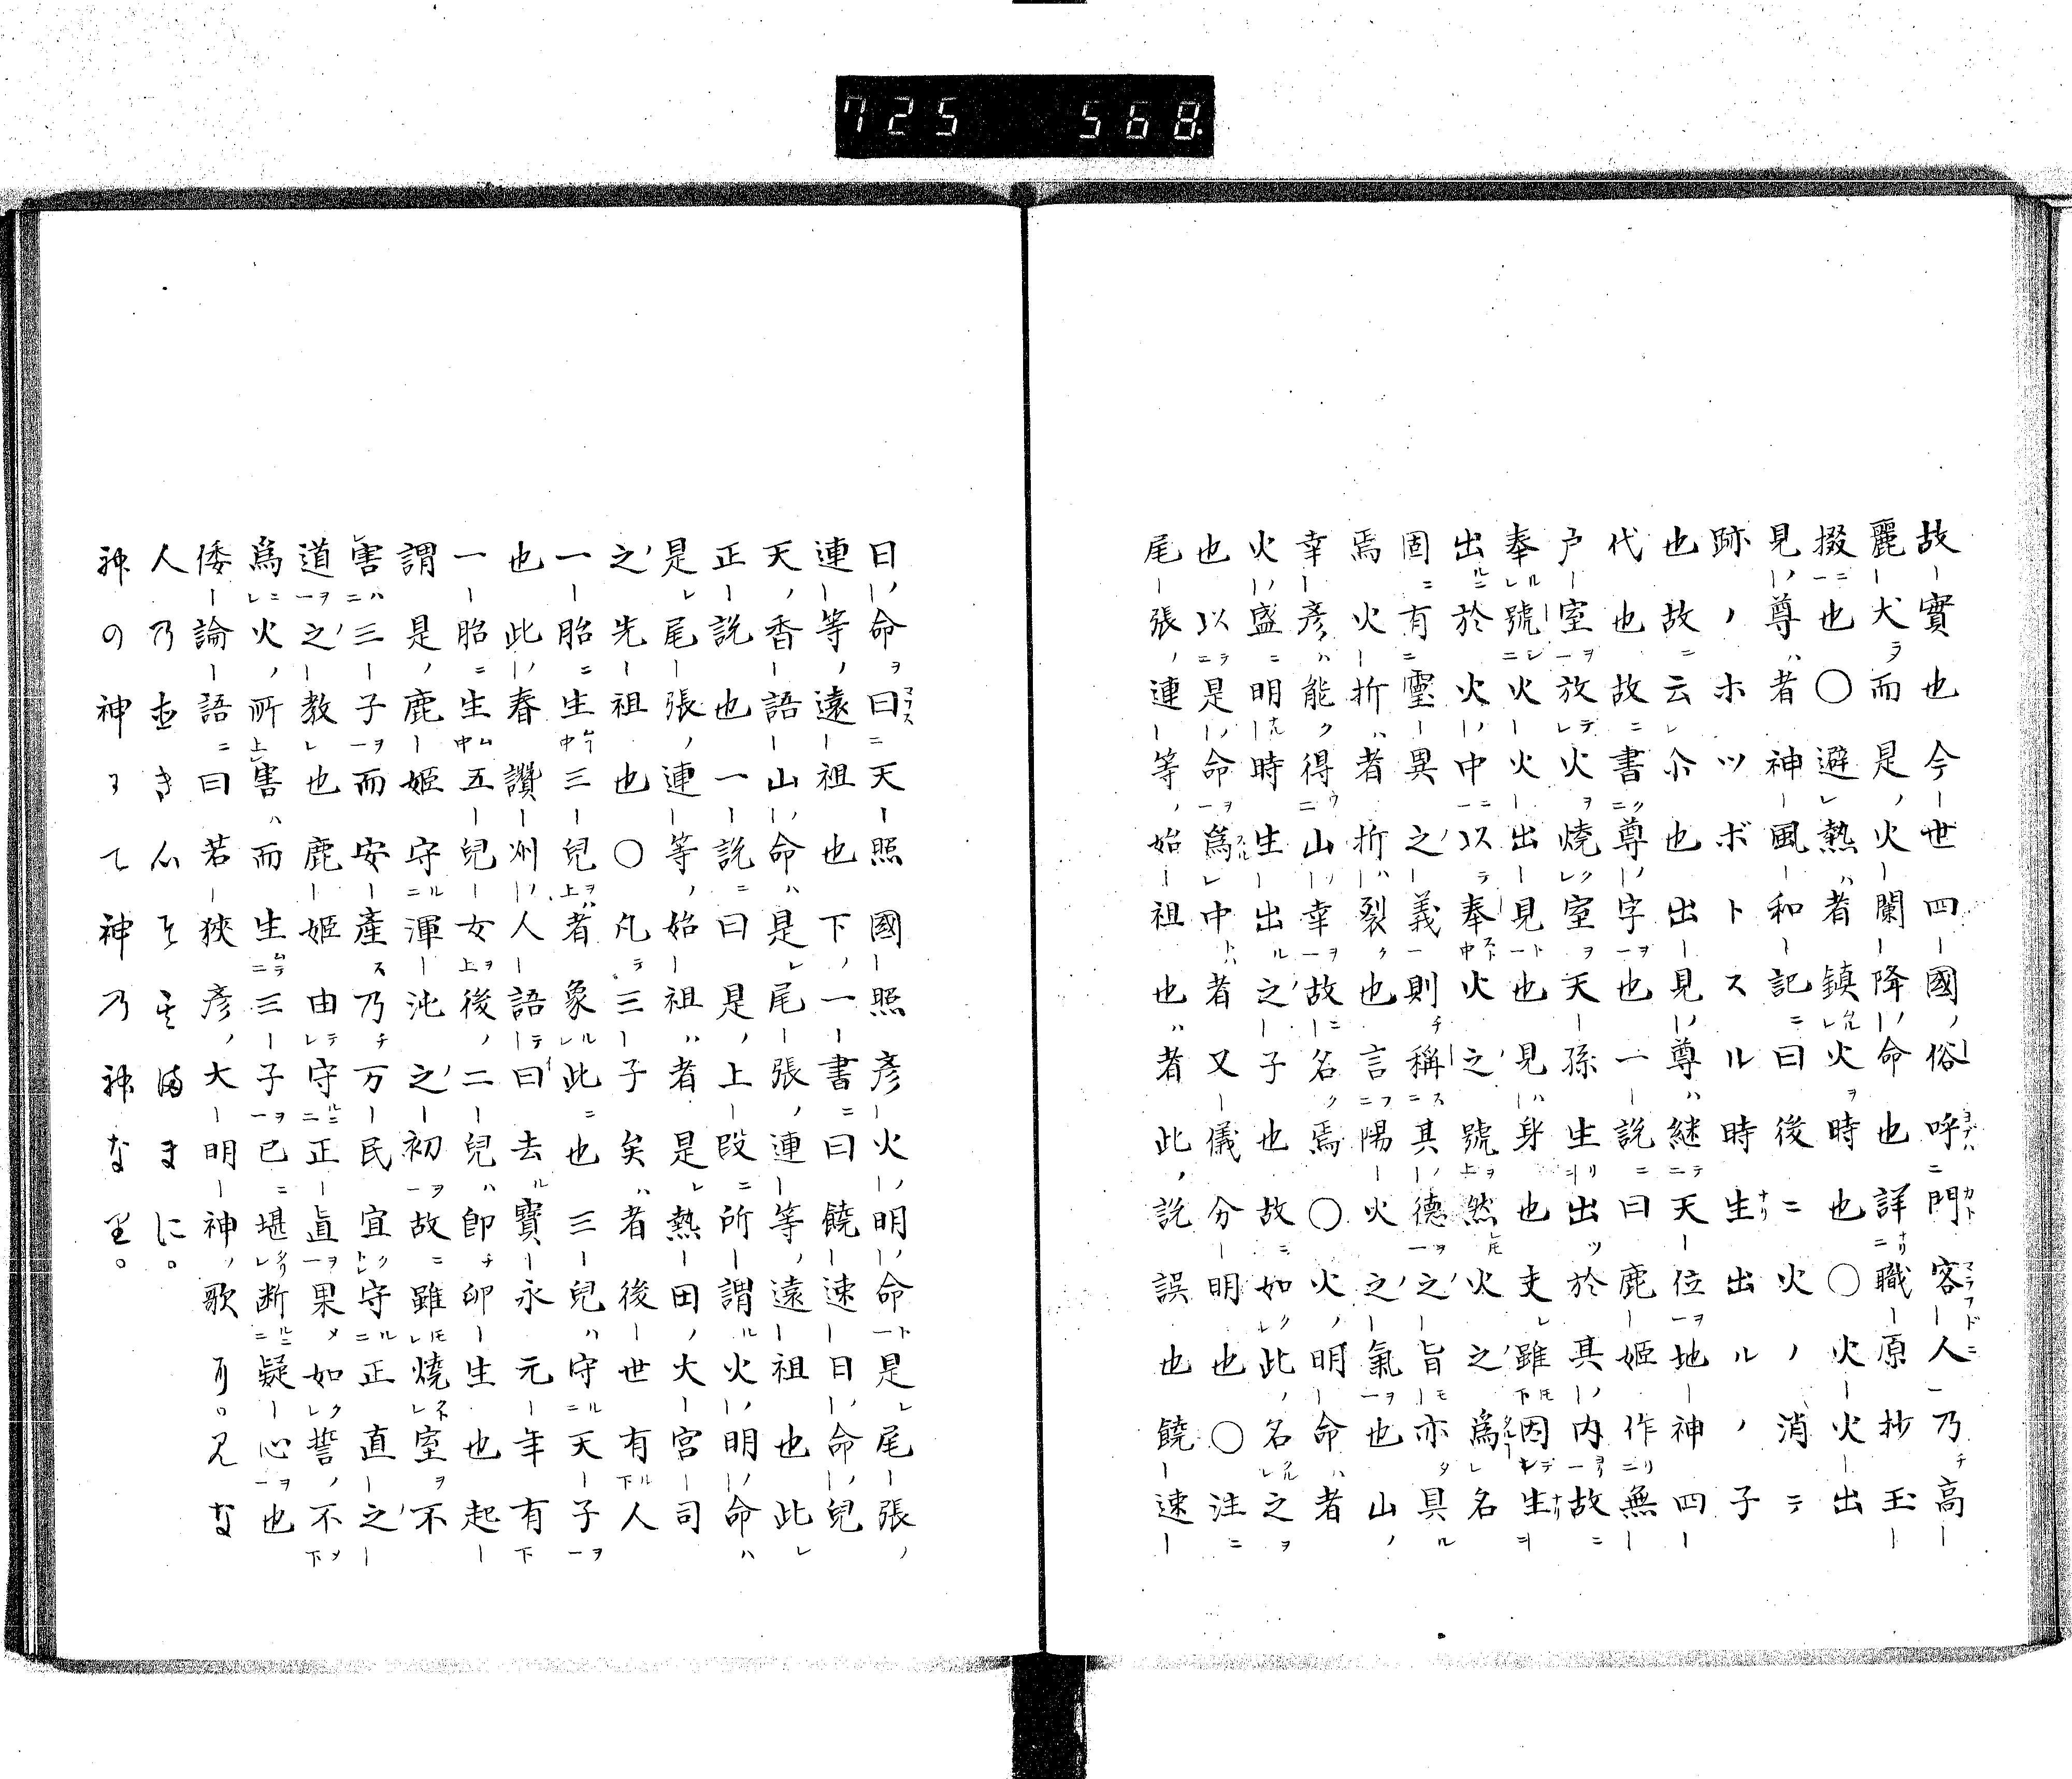 725 568
故實也今世四國俗呼門客人乃高
麗犬而是火闌降命也詳職原抄玉
掇也〇避熱者鎮火時也〇火火出
見尊者神風和記曰後火ノ消ニ
跡ノホツボトスル時ニ生出ルノ子
也故云尒也出見尊継天位地神四
代也故書尊字也一説曰鹿姫作無
戸室放火焼室天孫生出於其内故
奉號火火出見也見身也吏雖因生
出於火中以奉火之號然火之為名
固有靈異之義則稱其德之旨亦具
焉火折者折裂也言陽火之氣也山
幸彦能得山幸故名焉〇火明命者
火盛明時生出之子也故如此名之
也以是命為中者又儀分明也〇注
尾張連等始祖也者此説誤也饒速
日命曰天照國照彦火明命是尾張
連等遠祖也下一書曰饒速日命兒
天香語山命是尾張連等遠祖也此
正説也一説曰是上段所謂火明命
是尾張連等始祖者是熱田大宮司
之先祖也〇凡三子矣者後世有人
一胎生三兒者象此也三兒守天子
也此春讚州人語曰去寶永元年有
一胎生五兒女後二兒即卯生也起
謂是鹿姫守渾沌之初故雖焼室不
害三子而安産乃万民宜守正直之
道之教也鹿姫由守正直果如誓不
為火所害而生三子已堪断疑心也
倭論語曰若狭彦大明神歌